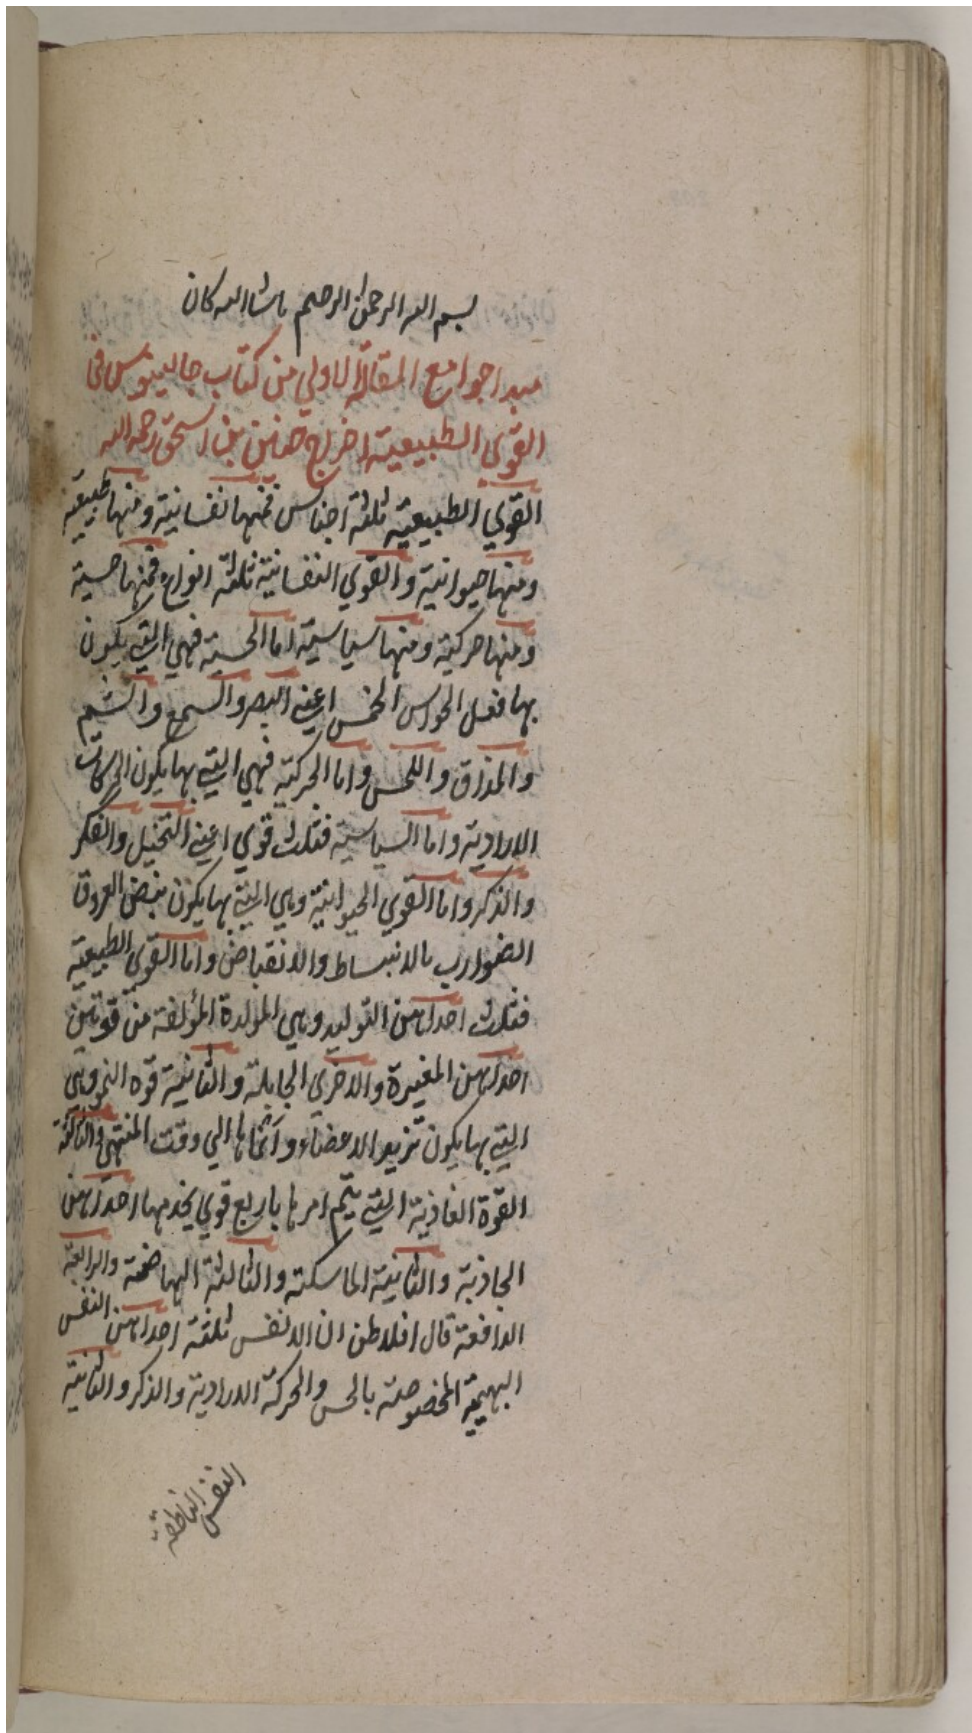 بسم الله الرحمن الرحيم ماشاالله كان
مبدا جوامع المقالة الاولي من كتاب جالينوس في
القوي الطبيعية اخراج حنين بن اسحق رحمه الله
القوي الطبيعية ثلثة اجناس فمنها نفسانية ومنها طبيعية
ومنها حيوانية والقوي النفسانية ثلثة انواع فمنها حسية
ومنها حركية ومنها سياسية اما الحسية فهي التي يكون
بها فعل الحواس الخمس اعني البصر والسمع والشم
والمذاق واللمس واما الحركية فهي التي بها يكون الحركات
الارادية واما السياسية فثلث قوي اعني التخيل والفكر
والذكر واما القوي الحيوانية وهي التي بها يكون نبض العروق
الضوارب بالانبساط والانقباض واما القوي الطبيعية
فثلث احداهن التوليد وهي المولدة المؤلفة من قوتين
احداهن المغيرة والاخري الجابلة والثانية قوه النمو وهي
التي بها يكون تزيد الاعضاء وانمائها الي وقت المنتهي والثالثة
القوة الغاذية التي يتم امرها باربع قوي يخدمها احداهن
الجاذبة والثانية الماسكة والثالثة الهاضمة والرابعة
الدافعة قال افلاطن ان الانفس ثلثة احداهن النفس
البهيمية المخصوصة بالحس والحركة الارادية والذكر والثانية
النفس الناطقة